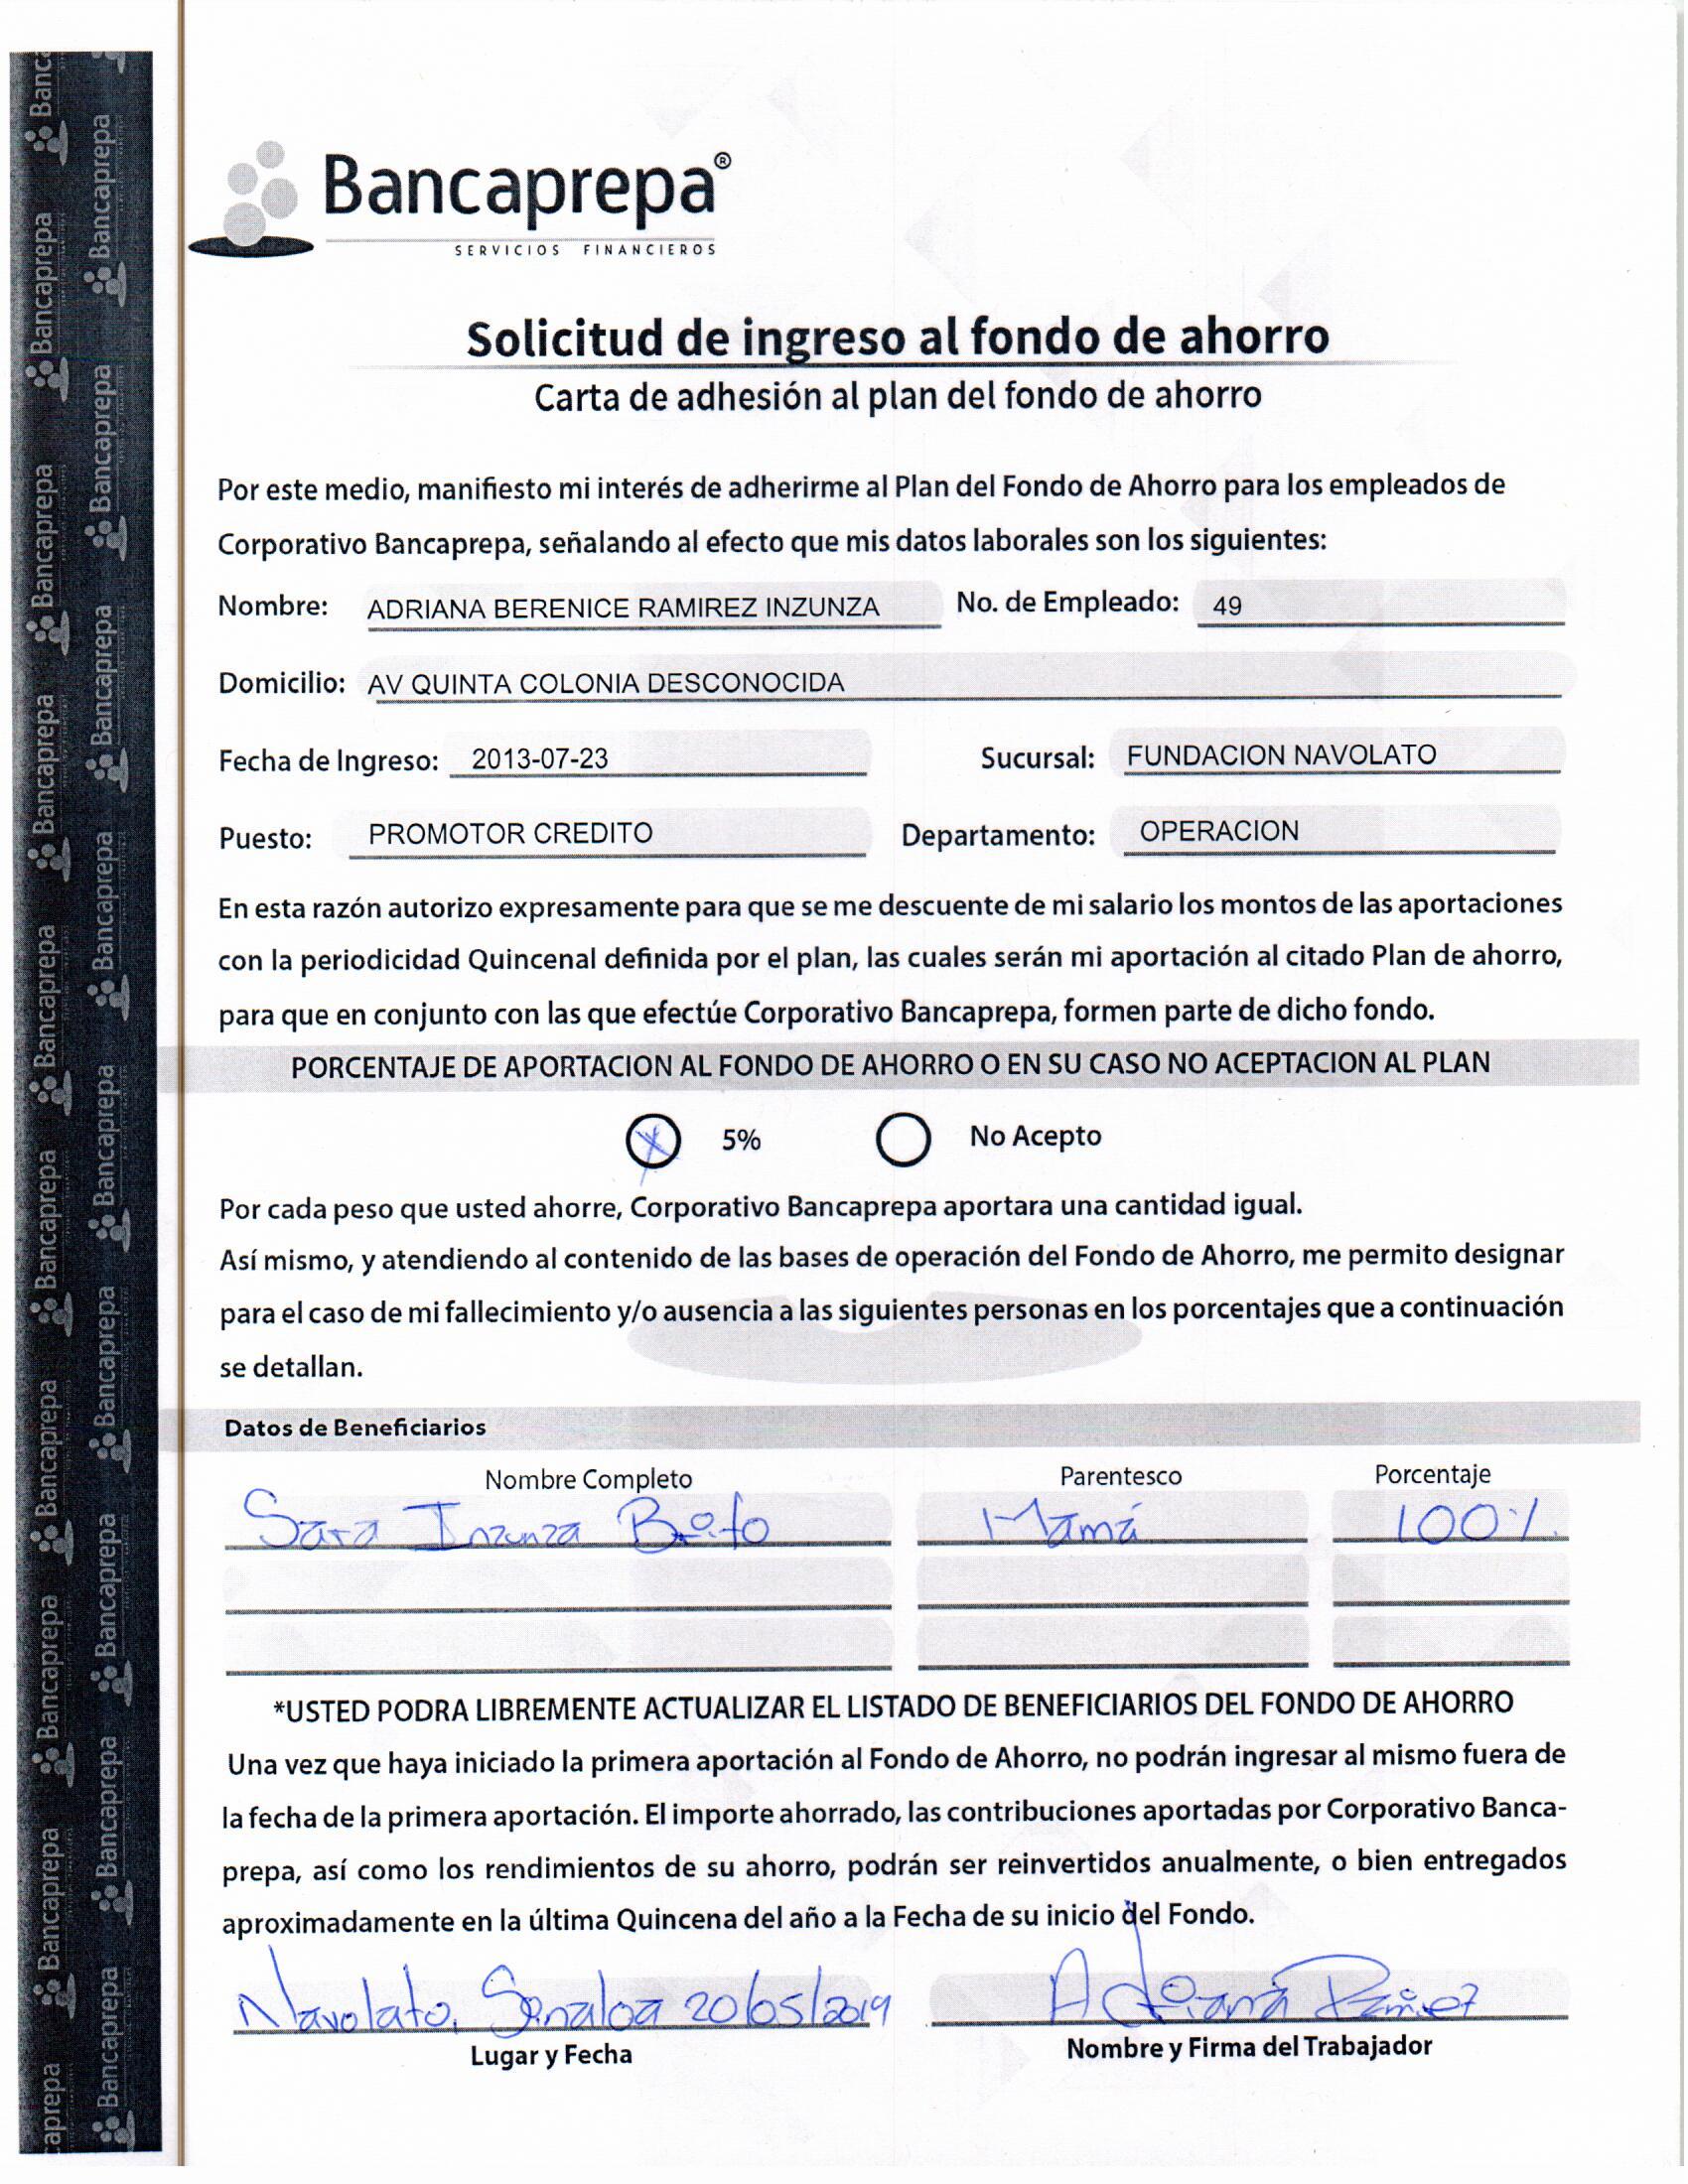 Bancaprepa®
SERVICIOS FINANCIEROS
Solicitud de ingreso al fondo de ahorro
Carta de adhesión al plan del fondo de ahorro
Por este medio, manifiesto mi interés de adherirme al Plan del Fondo de Ahorro para los empleados de
Corporativo Bancaprepa, señalando al efecto que mis datos laborales son los siguientes:
Nombre: ADRIANA BERENICE RAMIREZ INZUNZA No. de Empleado: 49
Domicilio: AV QUINTA COLONIA DESCONOCIDA
Fecha de Ingreso: 2013-07-23 Sucursal: FUNDACION NAVOLATO
Puesto: PROMOTOR CREDITO Departamento: OPERACION
En esta razón autorizo expresamente para que se me descuente de mi salario los montos de las aportaciones
con la periodicidad Quincenal definida por el plan, las cuales serán mi aportación al citado Plan de ahorro,
para que en conjunto con las que efectúe Corporativo Bancaprepa, formen parte de dicho fondo.
PORCENTAJE DE APORTACION AL FONDO DE AHORRO O EN SU CASO NO ACEPTACION AL PLAN
X 5% No Acepto
Por cada peso que usted ahorre, Corporativo Bancaprepa aportara una cantidad igual.
Así mismo, y atendiendo al contenido de las bases de operación del Fondo de Ahorro, me permito designar
para el caso de mi fallecimiento y/o ausencia a las siguientes personas en los porcentajes que a continuación
se detallan.
Datos de Beneficiarios
Nombre Completo Parentesco Porcentaje
Sara Inzunza Brito Mamá 100%
*USTED PODRA LIBREMENTE ACTUALIZAR EL LISTADO DE BENEFICIARIOS DEL FONDO DE AHORRO
Una vez que haya iniciado la primera aportación al Fondo de Ahorro, no podrán ingresar al mismo fuera de
la fecha de la primera aportación. El importe ahorrado, las contribuciones aportadas por Corporativo Banca-
prepa, así como los rendimientos de su ahorro, podrán ser reinvertidos anualmente, o bien entregados
aproximadamente en la última Quincena del año a la Fecha de su inicio del Fondo.
Navolato, Sinaloa 20/05/2019 Adriana Ramirez
Lugar y Fecha Nombre y Firma del Trabajador